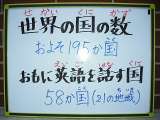 せかい くに かず
世界の国の数
およそ195か国
えいご はな くに
おもに英語を話す国
58か国(21の地域)